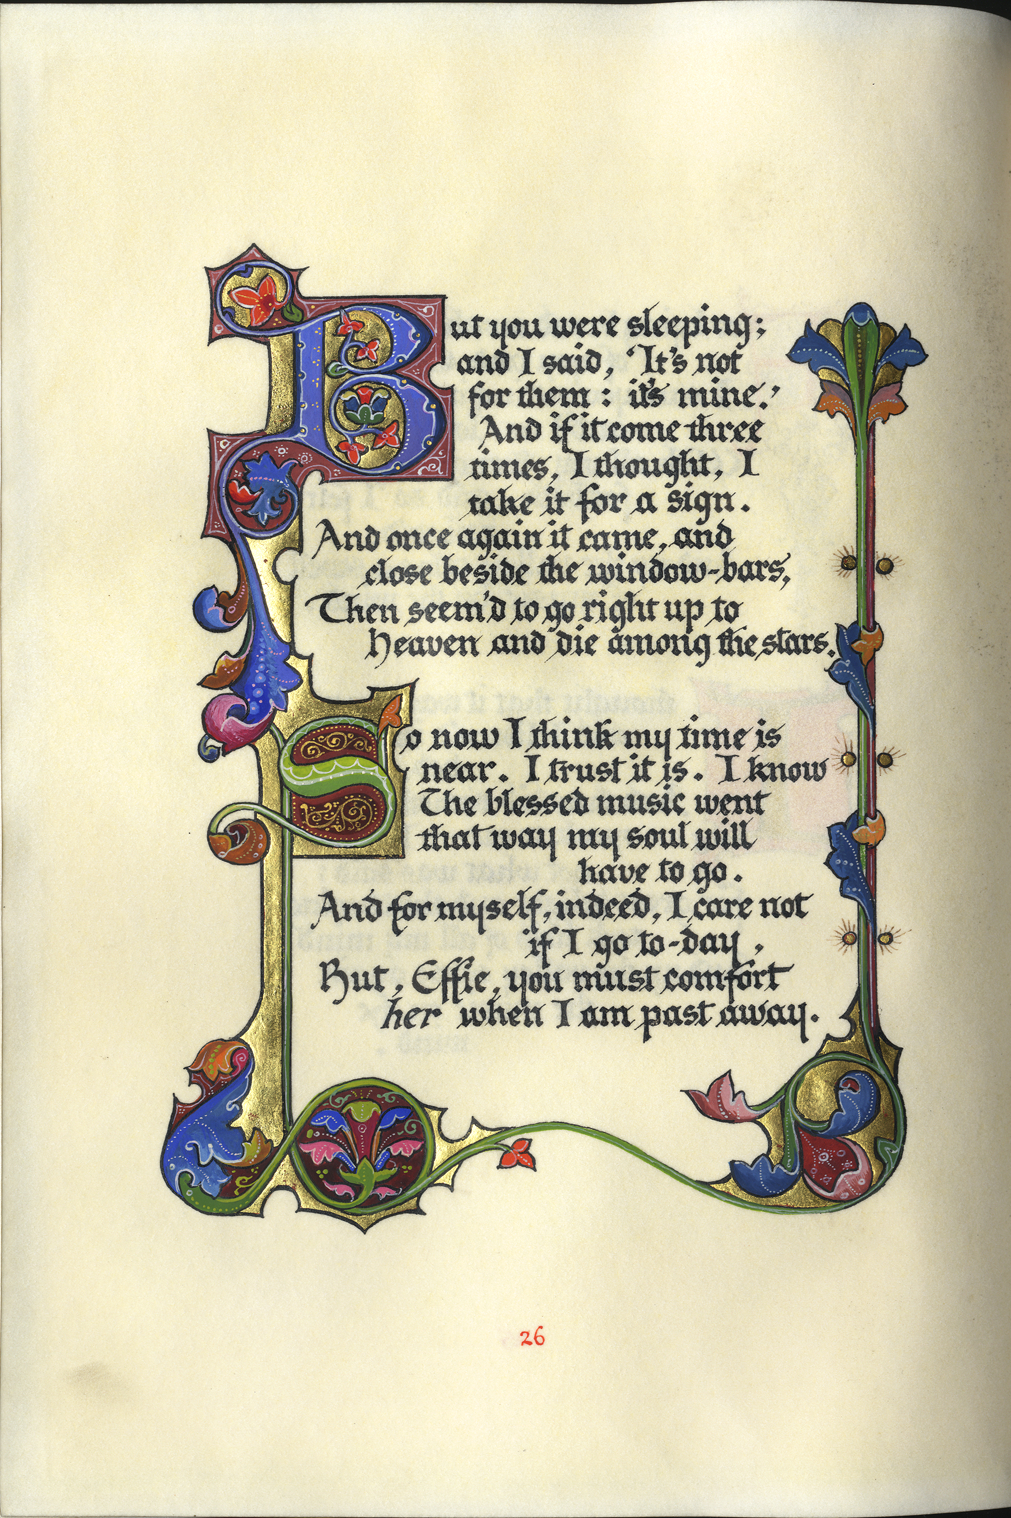 But you were sleeping;
and I said, 'It's not
for them: it's mine.'
And if it come three
times, I thought, I
take it for a sign.
And once again it came, and
close beside the window-bars,
Then seem'd to go right up to
Heaven and die among the stars.
So now I think my time is
near. I trust it is. I know
The blessed music went
that way my soul will
have to go.
And for myself, indeed, I care not
if I go to-day,
But, Effie, you must comfort
her when I am past away.
26